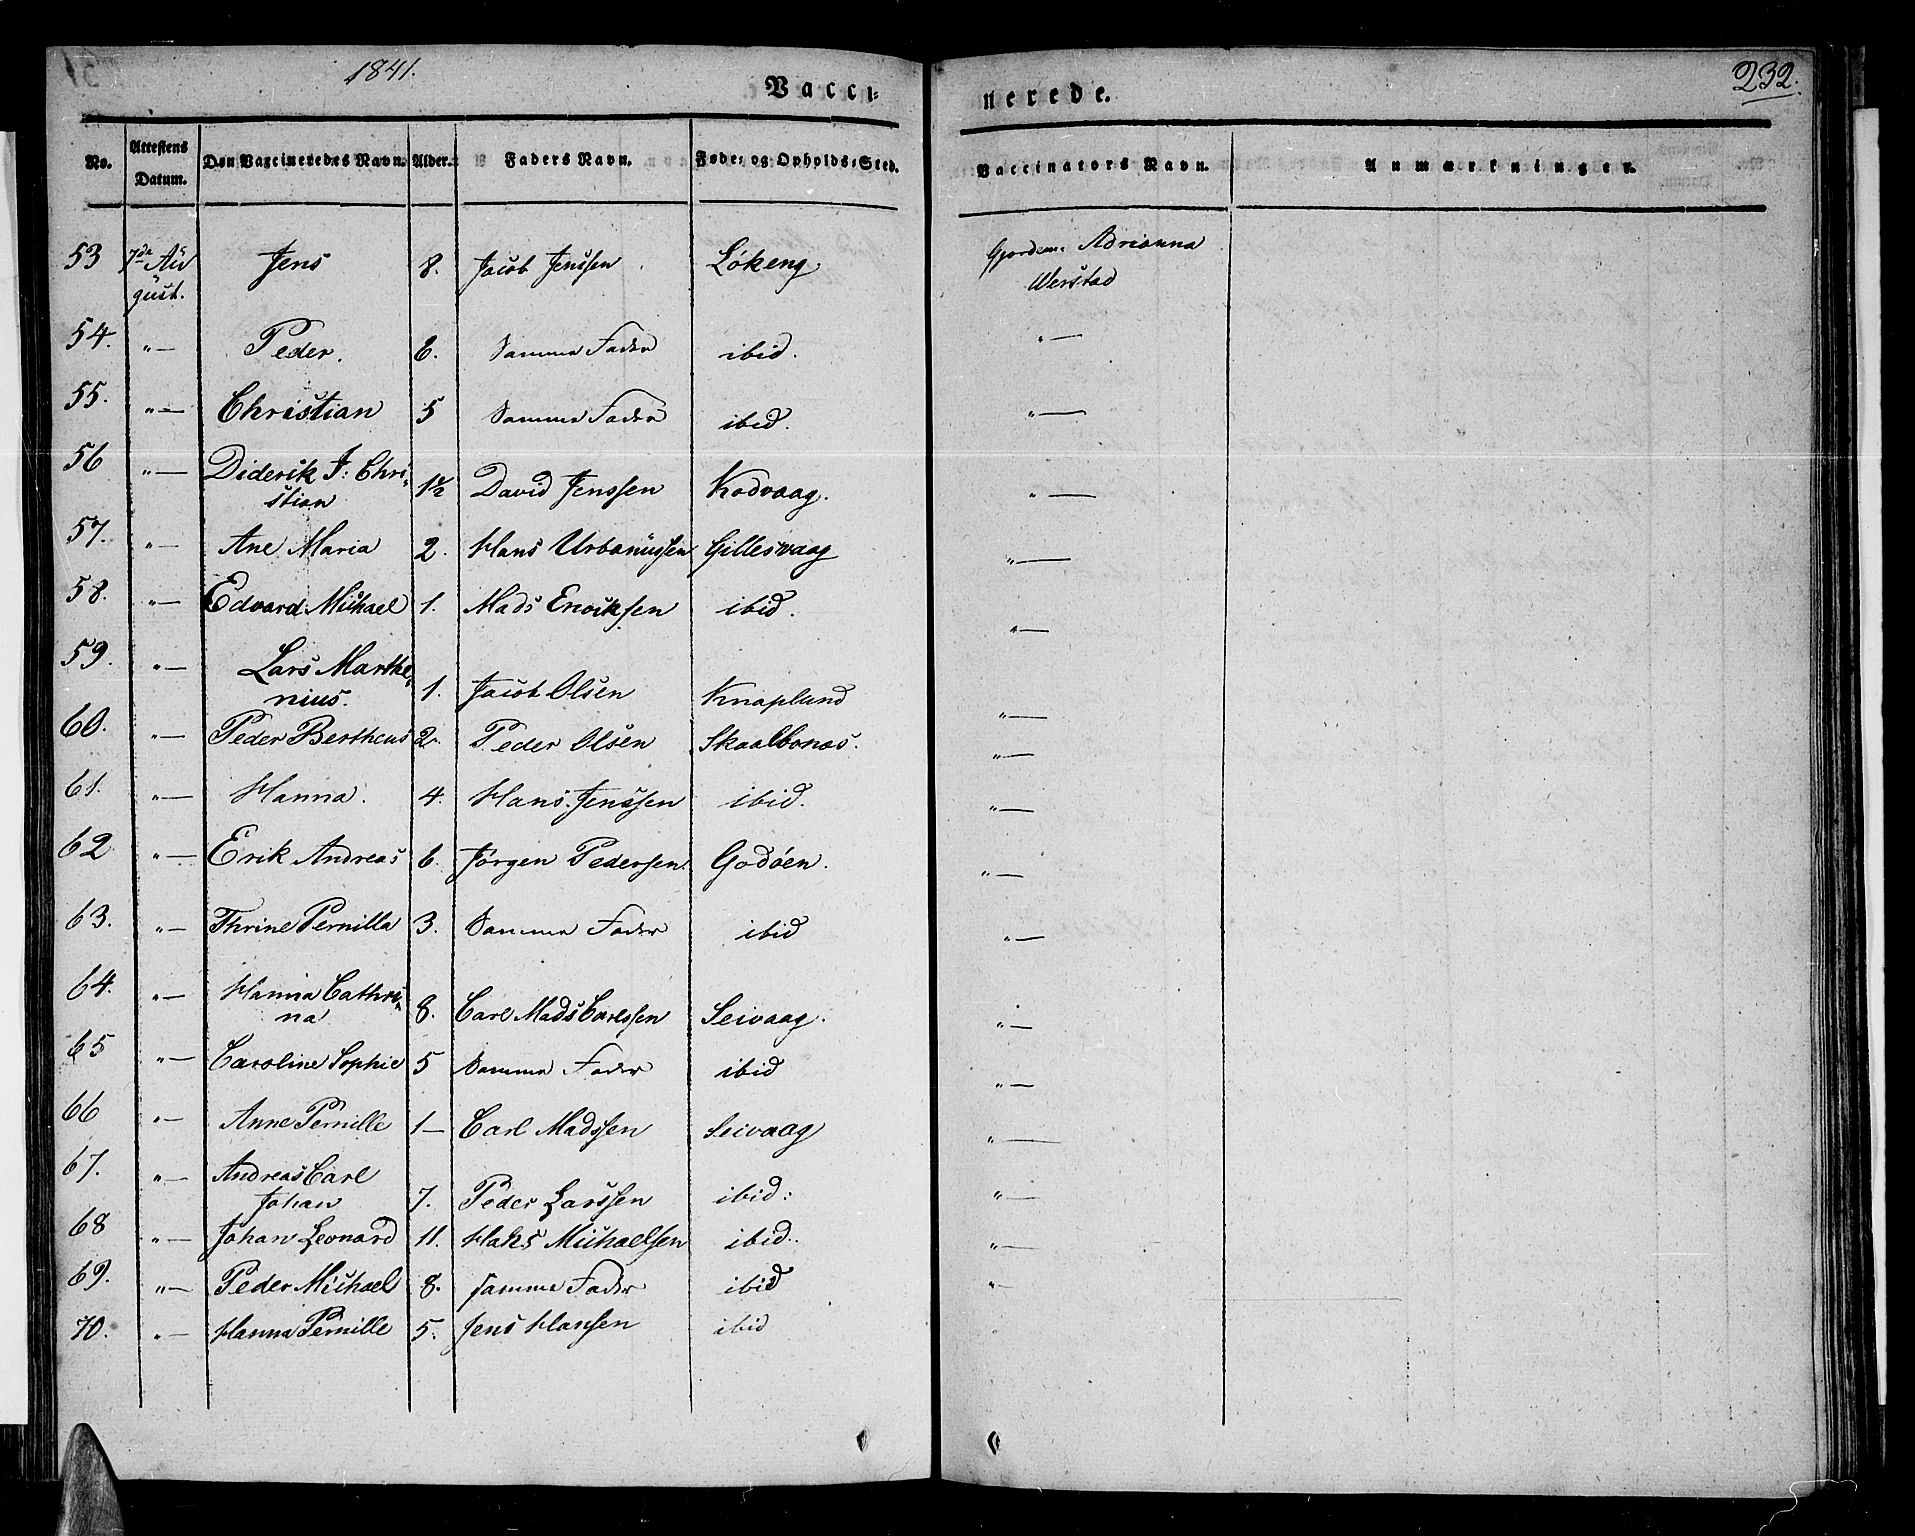 1841.
Vacci-
nerede.
232.
No. Attestens Datum. Den Vaccineredes Navn. Alder. Faders Navn. Føde- og Opholds-Sted. Vaccinators Navn. Anmærkninger.
53 7de Au Jens 8. Jacob Jenssen Løkeng. Gjordem. Adrianna
gust. Werstad
54. "— Peder. 6. Samme Fader ibid. "—
55. "— Christian 5 Samme Fader ibid. "—
56 "— Diderik J: Chri-
stian 1½ David Jenssen Kodvaag. "—
57. "— Ane Maria 2. Hans Urbanussen Gillesvaag "—
58. "— Edvard Michael 1. Mads Enocksen ibid. "—
59. "— Lars Marthe-
nius. 1. Jacob Olsen Knaplund "—
60. "— Peder Bertheus 2. Peder Olsen Skaalbonæs. "—
61. "— Hanna. 4. Hans Jenssen ibid. "—
62 "— Erik Andreas 6. Jørgen Pedersen Godøen. "—
63. "— Thrine Pernilla 3. Samme Fader ibid "—
64. "— Hanna Cathri-
na 8. Carl Mads Carlssen Seivaag. "—
65 "— Caroline Sophie 5 Samme Fader ibid "—
66 "— Anne Pernille 1— Carl Madssen Seivaag "—
67. "— Andreas Carl
Johan 7. Peder Larssen ibid: "—
68 "— Johan Leonard 11. Hans Michaelsen ibid. "—
69. "— Peder Michael 8. Samme Fader ibid "—
70. "— Hanna Pernille 5. Jens Hansen ibid